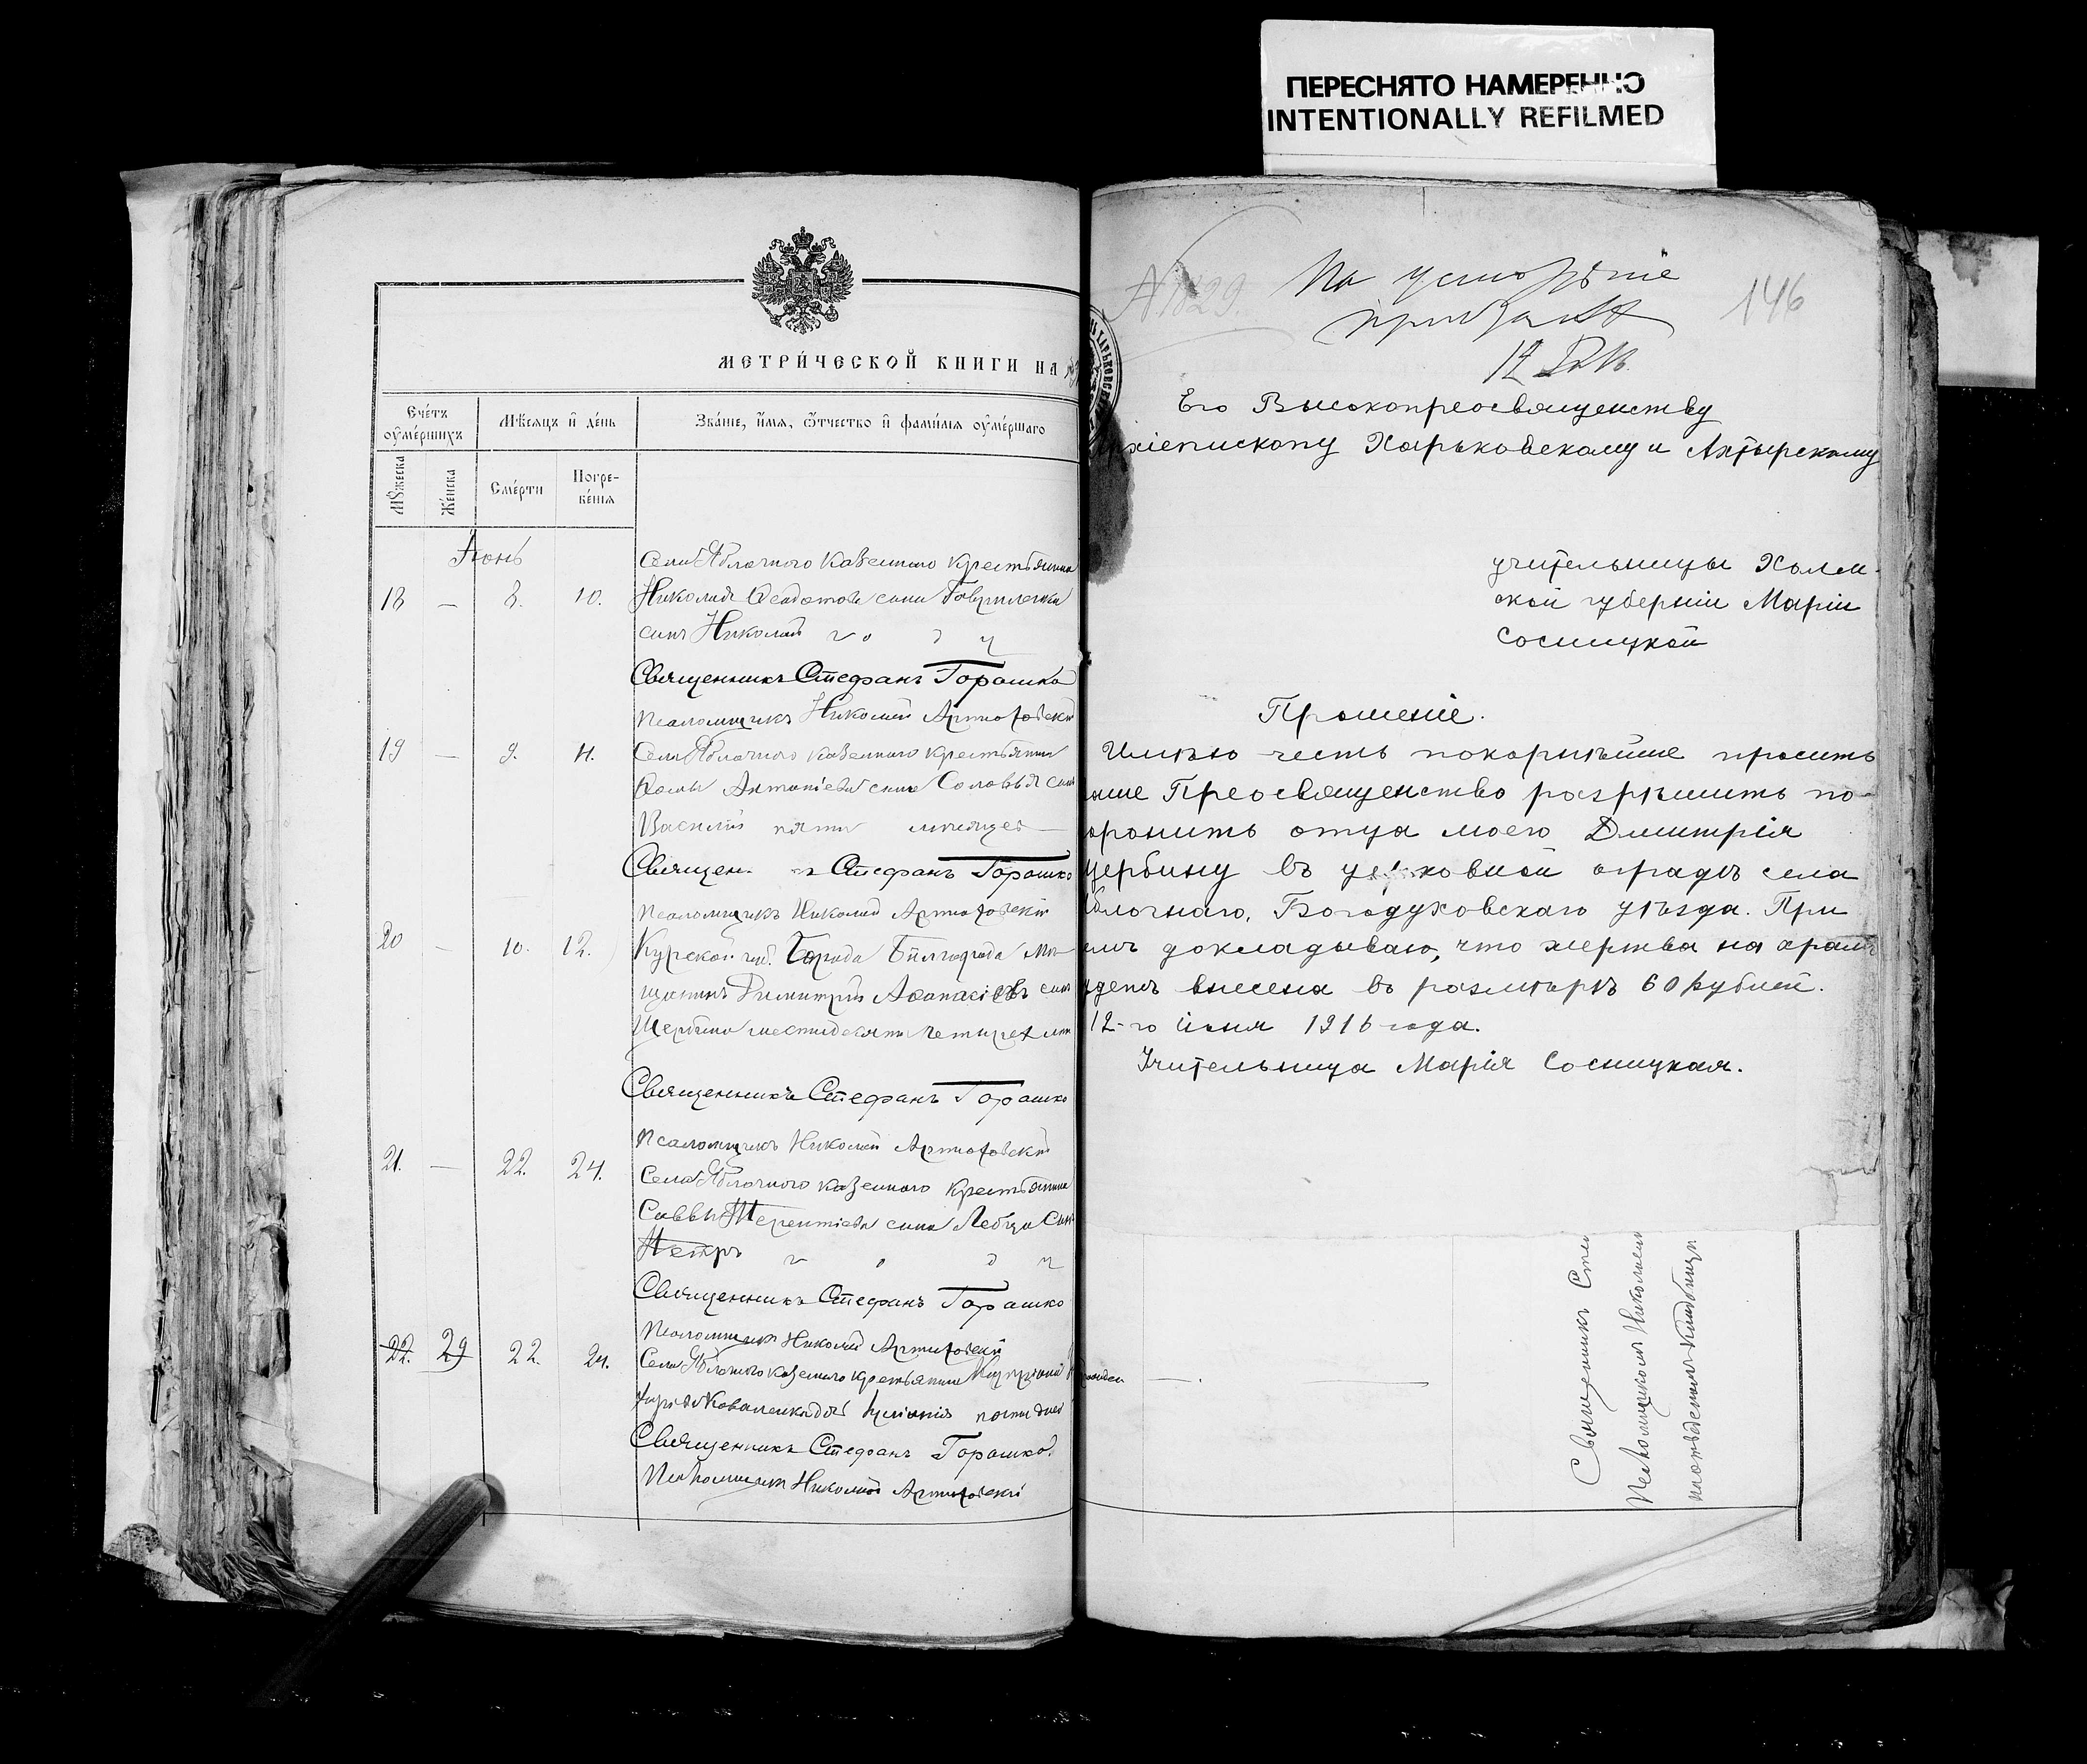 ПЕРЕСНЯТО НАМЕРЕННО
INTENTIONALLY REFILMED
МЕТРИ́ЧЕСКОЙ КНИГИ НА
Сче́тъ оу҆ме́ршихъ
Мѣ́сяцъ и҆ де́нь
Зва́нїе, и҆́мѧ, ѻ҆́тчество и҆ фами́лїѧ оу҆ме́ршагѡ
Мꙋ́жеска
Же́нска
Сме́рти
Погребе́нїѧ
Іюнь
Села Яблочного казенного крестьянина
18 — 8. 10. Николая Феодотова сына Гавриленка
сынъ Николай
Священникъ Стефанъ Горошко
Псаломщикъ Николай Артюховскій
19 — 9. 11. Села Яблочного казенного крестьянина
Фомы Антоніева сына Соловья сынъ
Василій пяти мѣсяцев
Священ. Стефанъ Горошко
Псаломщикъ Николай Артюховскій
20 — 10. 12. Курской губ. Города Бѣлгорода Мѣ-
щанинъ Димитрій Аѳанасіевъ сынъ
Щербина шестидесяти четырех лѣт
Священникъ Стефанъ Горошко
Псаломщикъ Николай Артюховскій
21. — 22. 24. Села Яблочного казенного крестьянина
Саввы Терентіева сына сынъ
Петръ
Священникъ Стефанъ Горошко
Псаломщик Николай Артюховскій
22. 29 22. 24. Села Яблочного казенного крестьянина
Коваленка дочь пяти дней
Священникъ Стефанъ Горошко.
Псаломщик Николай Артюховскій
№ 1829.
146
На
12
Его Высокопреосвященству
рхіепископу Харьковскому и Ахтырскому
учительницы Холм-
ской губерніи Маріи
Сосницкой
Прошеніе.
Имѣю честь покорнѣйше просить
аше Преосвященство разрѣшить по-
оронить отца моего Дмитрія
Щербину въ церковной оградѣ села
блочнаго, Богодуховскаго уѣзда. При
емъ докладываю, что жертва на храмъ
удетъ внесена въ размѣрѣ 60 рублей.
12-го іюня 1916 года.
Учительница Марія Сосницкая.
Священникъ Сте
Псаломщикъ Николай